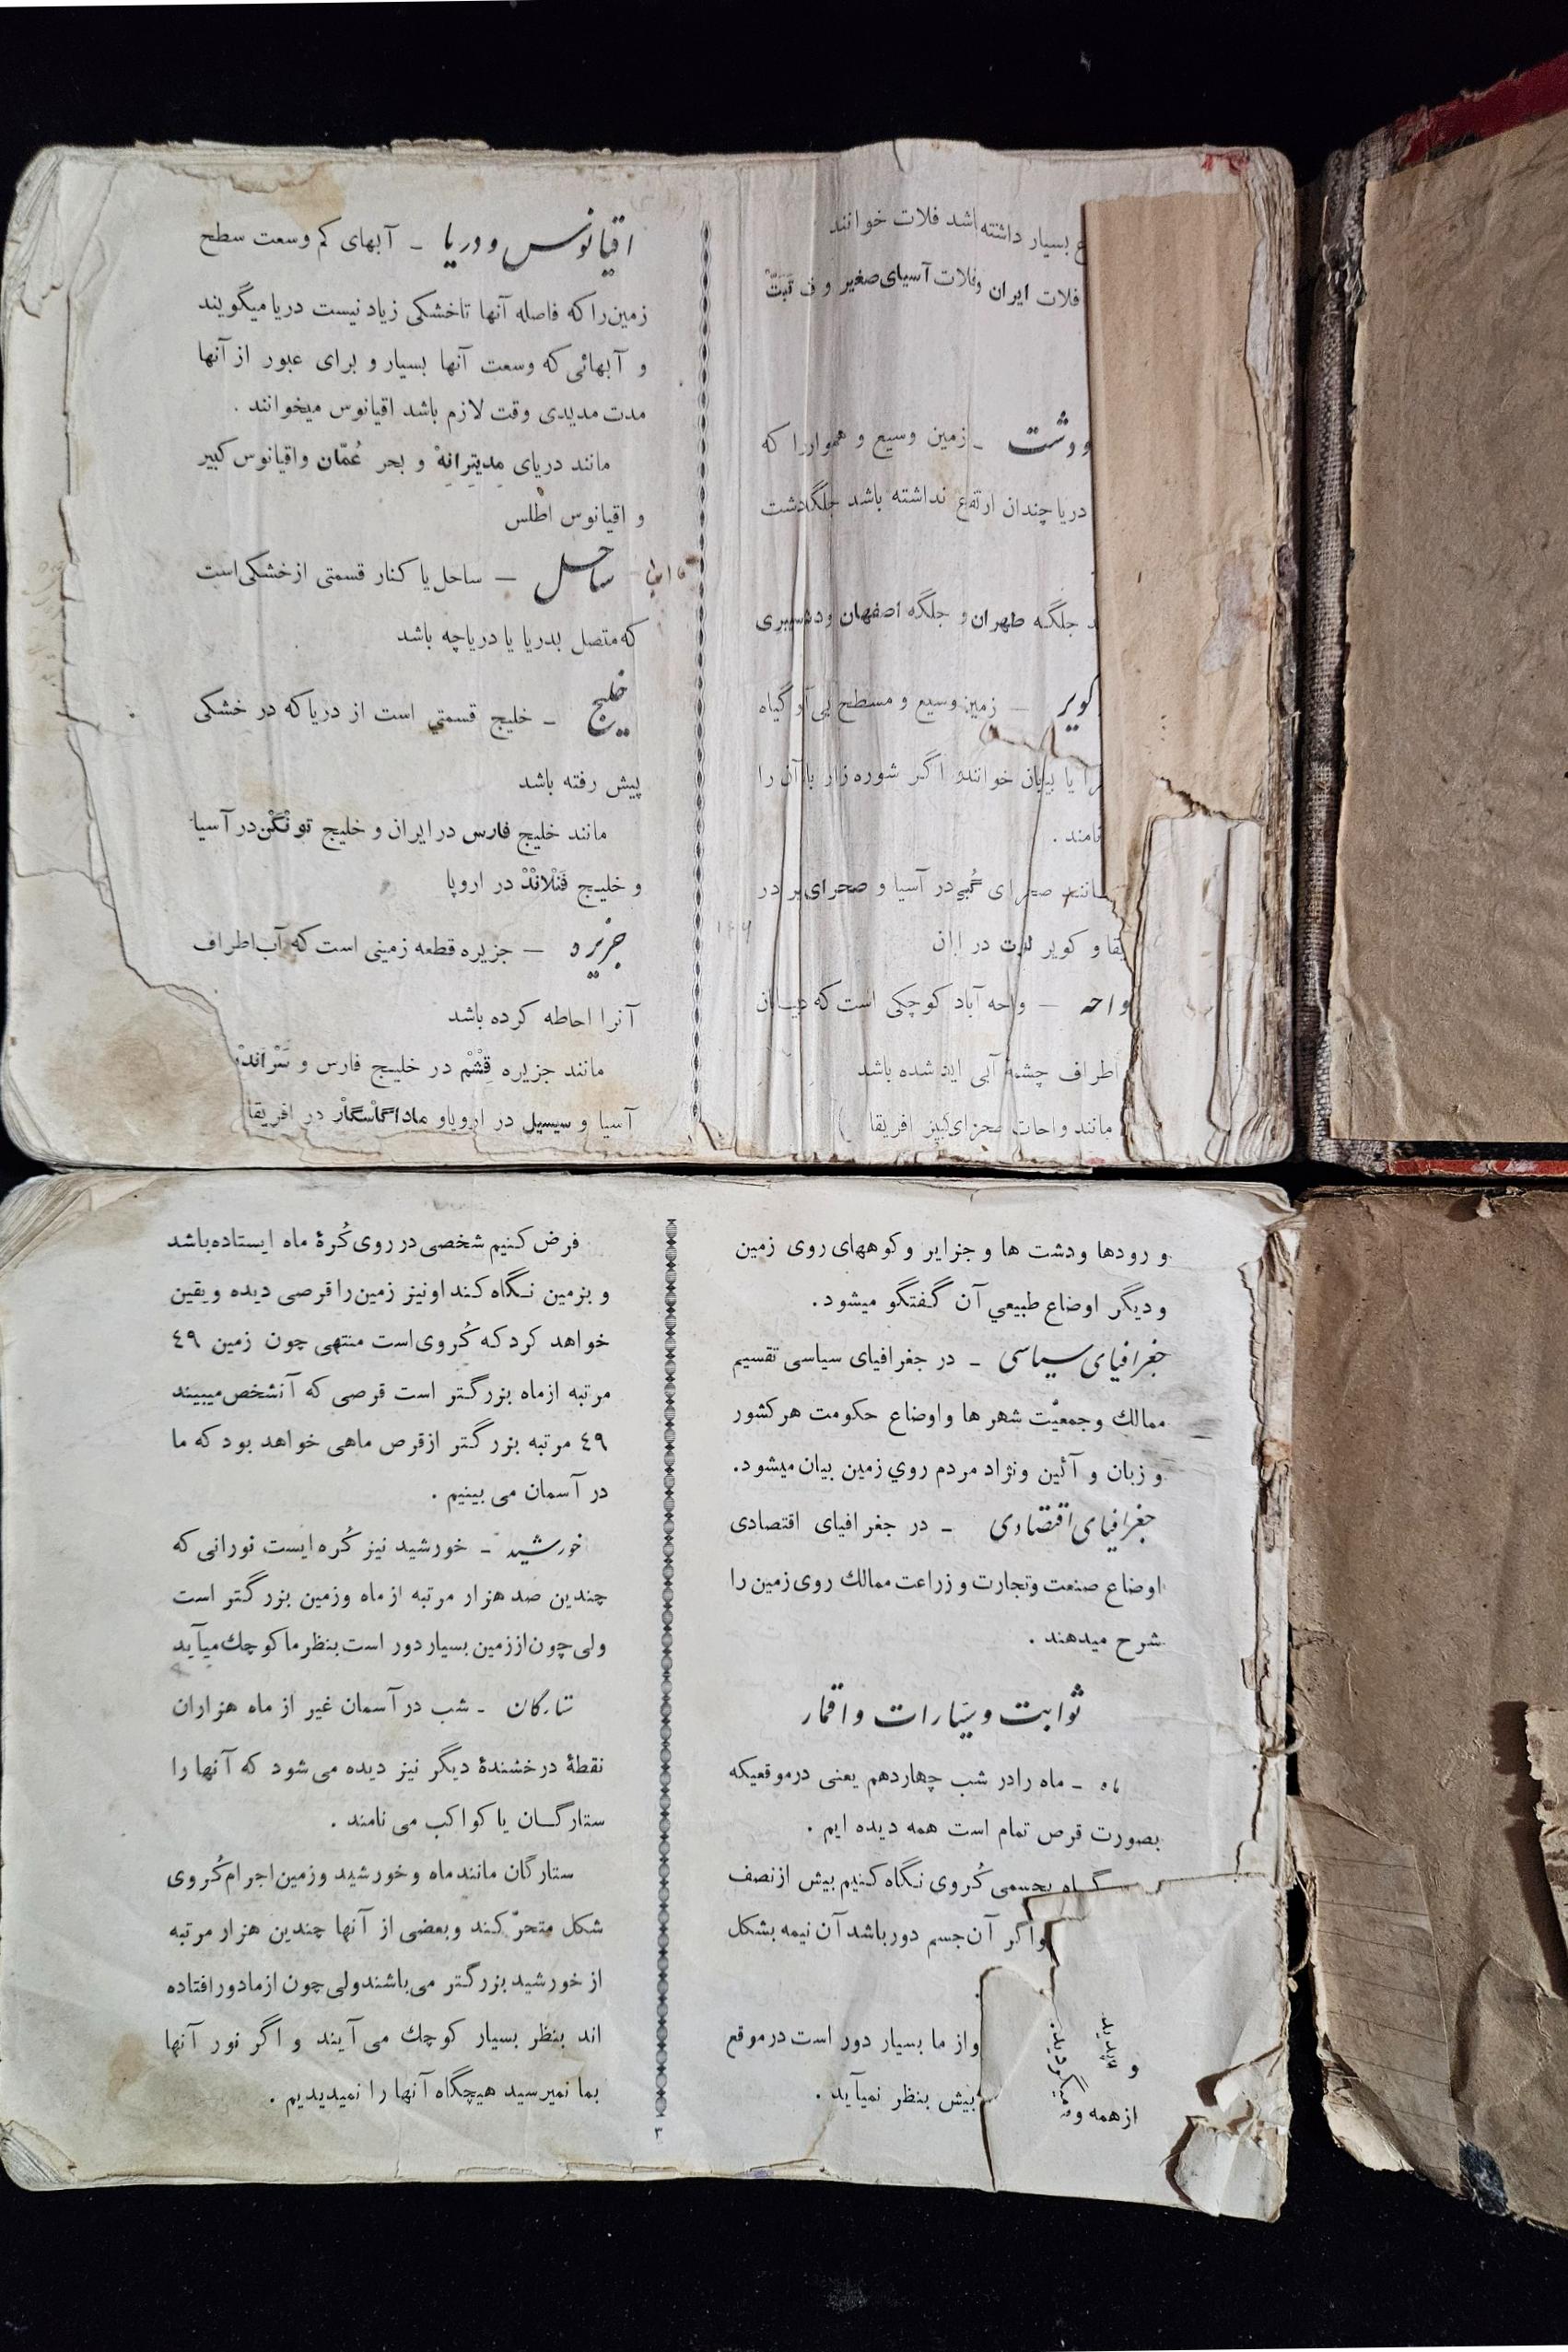 ع بسیار داشته باشد فلات خوانند
فلات ایران وفلات آسیای صغیر و ف تبت
ودشت ـ زمین وسیع و هموار را که
دریا چندان ارتفع نداشته باشد جلگه دشت
جلگه طهران و جلگه اصفهان و
کویر ـ زمین وسیع و مسطح بی آ و گیاه
را یا بیابان خوانند اگر شوره زار با آن را
نامند .
مانند صحرای گبی در آسیا و صحرای بر در
یقا و کویر لوت در ایران
واحه ـ واحه آباد کوچکی است که
اطراف چشمه آبی ایجاد شده باشد
مانند واحات صحرای کبیر افریقا
اقیانوس و دریا ـ آبهای کم وسعت سطح
زمین را که فاصله آنها تا خشکی زیاد نیست دریا میگویند
و آبهائی که وسعت آنها بسیار و برای عبور از آنها
مدت مدیدی وقت لازم باشد اقیانوس میخوانند .
مانند دریای مدیترانه و بحر عُمّان و اقیانوس کبیر
و اقیانوس اطلس
ساحل ـ ساحل یا کنار قسمتی از خشکی است
که متصل بدریا یا دریاچه باشد
خلیج ـ خلیج قسمتی است از دریا که در خشکی
پیش رفته باشد
مانند خلیج فارس در ایران و خلیج تونْگنْ در آسیا
و خلیج فَنْلانْدْ در اروپا
جزیره ـ جزیره قطعه زمینی است که آب اطراف
آنرا احاطه کرده باشد
مانند جزیره قِشْمْ در خلیج فارس و سَرْاندْ
آسیا و سیسیل در اروپا و ماداگاسگار در افریقا
و رودها و دشت ها و جزایر و کوههای روی زمین
و دیگر اوضاع طبیعي آن گفتگو میشود.
جغرافیای سیاسی ـ در جغرافیای سیاسی تقسیم
ممالك و جمعیّت شهر ها و اوضاع حکومت هر کشور
و زبان و آئین و نژاد مردم روي زمین بیان میشود.
جغرافیای اقتصادی ـ در جغرافیای اقتصادی
اوضاع صنعت و تجارت و زراعت ممالك روی زمین را
شرح میدهند .
ثوابت و سیّارات و اقمار
ماه ـ ماه را در شب چهاردهم یعنی در موقعیکه
بصورت قرص تمام است همه دیده ایم .
گاه بجسمی کُروی نگاه کنیم بیش از نصف
واگر آن جسم دور باشد آن نیمه بشکل
و از ما بسیار دور است در موقع
بیش بنظر نمیآید .
و
از همه
فرض کنیم شخصی در روی کُرهٔ ماه ایستاده باشد
و بزمین نگاه کند او نیز زمین را قرصی دیده و یقین
خواهد کرد که کُروی است منتهی چون زمین ٤٩
مرتبه از ماه بزرگتر است قرصی که آنشخص میبیند
٤٩ مرتبه بزرگتر از قرص ماهی خواهد بود که ما
در آسمان می بینیم .
خورشید ـ خورشید نیز کُره ایست نورانی که
چندین صد هزار مرتبه از ماه و زمین بزرگتر است
ولی چون از زمین بسیار دور است بنظر ما کوچك میآید
ستارگان ـ شب در آسمان غیر از ماه هزاران
نقطهٔ درخشندهٔ دیگر نیز دیده می شود که آنها را
ستارگان یا کواکب می نامند .
ستارگان مانند ماه و خورشید و زمین اجرام کُروی
شکل متحرّکند و بعضی از آنها چندین هزار مرتبه
از خورشید بزرگتر می باشند ولی چون از ما دور افتاده
اند بنظر بسیار کوچك می آیند و اگر نور آنها
بما نمیرسید هیچگاه آنها را نمیدیدیم .
۳